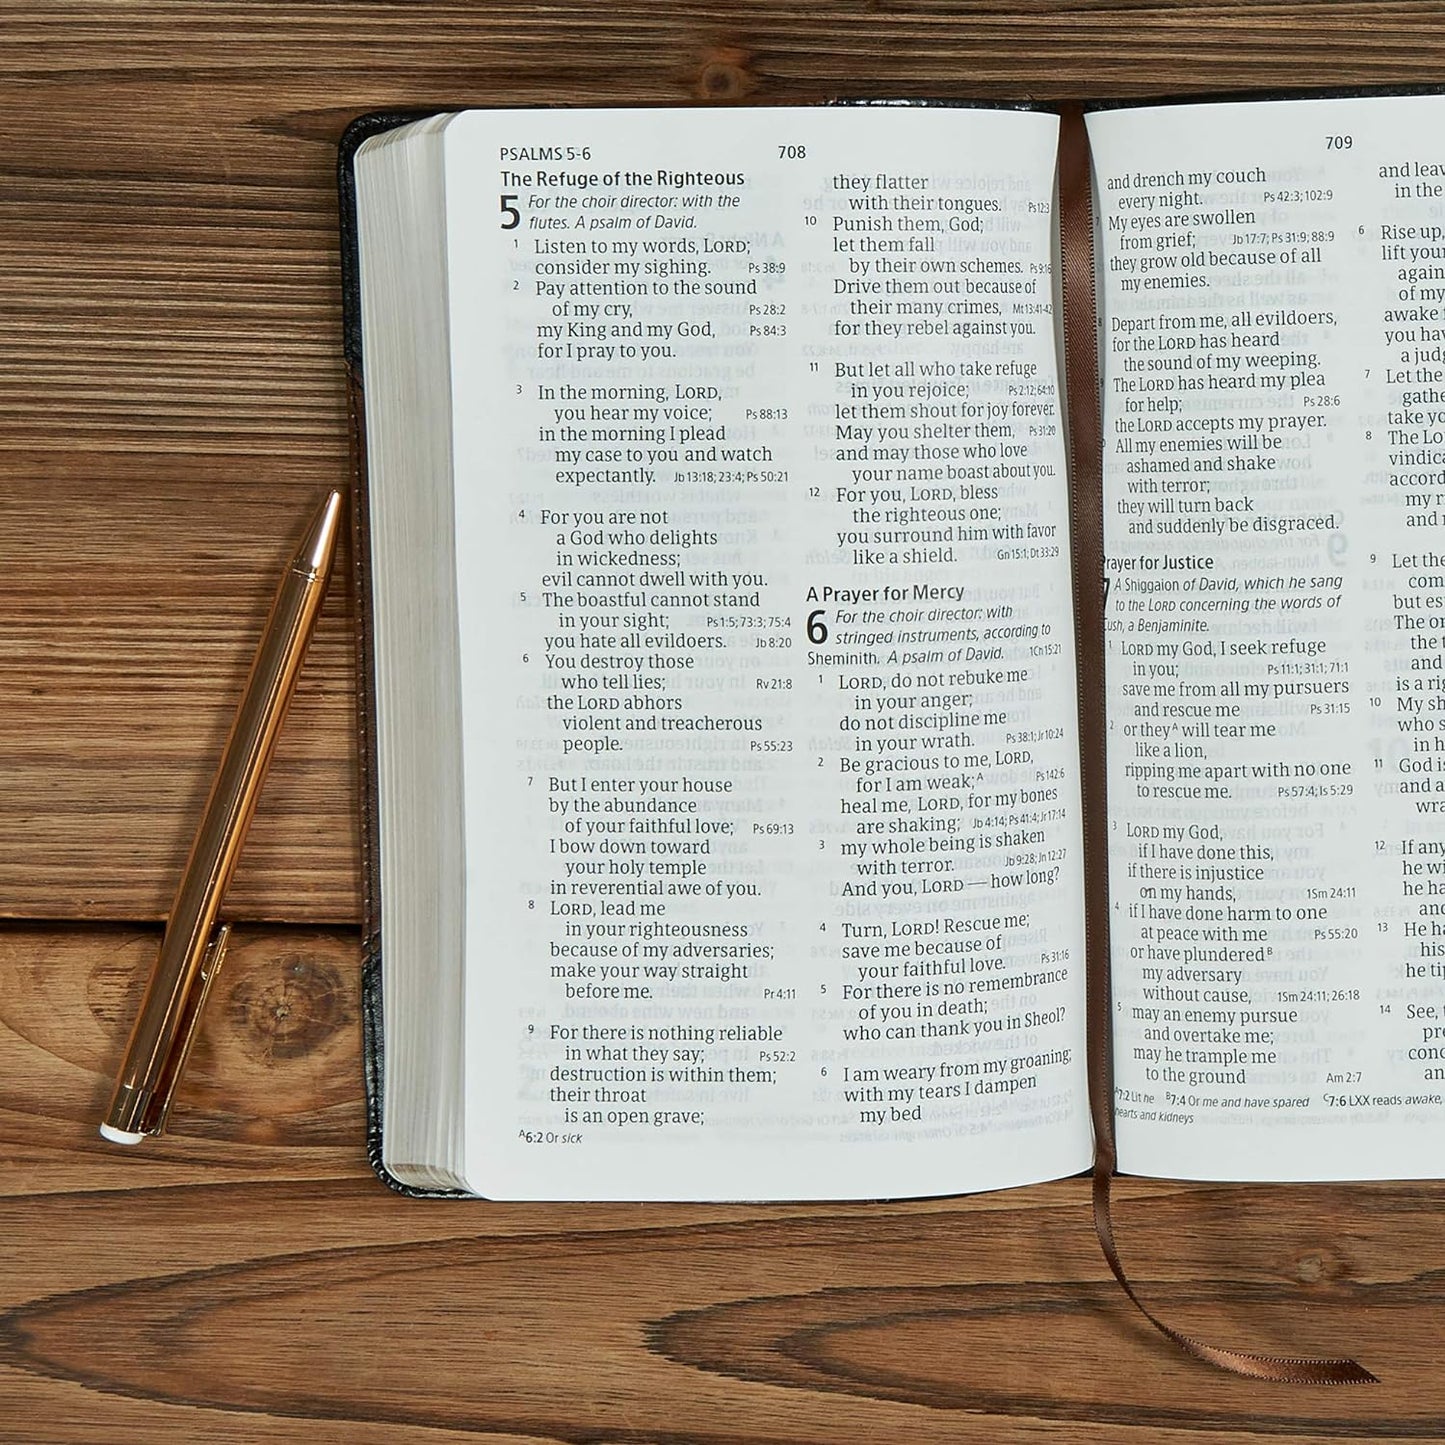 PSALMS 5-6
708
The Refuge of the Righteous
5 For the choir director: with the
flutes. A psalm of David.
1 Listen to my words, LORD;
consider my sighing. Ps 38:9
2 Pay attention to the sound
of my cry, Ps 28:2
my King and my God, Ps 84:3
for I pray to you.
3 In the morning, LORD,
you hear my voice; Ps 88:13
in the morning I plead
my case to you and watch
expectantly. Jb 13:18; 23:4; Ps 50:21
4 For you are not
a God who delights
in wickedness;
evil cannot dwell with you.
5 The boastful cannot stand
in your sight; Ps 1:5; 73:3; 75:4
you hate all evildoers. Jb 8:20
6 You destroy those
who tell lies; Rv 21:8
the LORD abhors
violent and treacherous
people. Ps 55:23
7 But I enter your house
by the abundance
of your faithful love; Ps 69:13
I bow down toward
your holy temple
in reverential awe of you.
8 LORD, lead me
in your righteousness
because of my adversaries;
make your way straight
before me. Pr 4:11
9 For there is nothing reliable
in what they say; Ps 52:2
destruction is within them;
their throat
is an open grave;
A6:2 Or sick
they flatter
with their tongues. Ps 12:3
10 Punish them, God;
let them fall
by their own schemes. Ps 9:16
Drive them out because of
their many crimes, Mt 13:41-42
for they rebel against you.
11 But let all who take refuge
in you rejoice; Ps 2:12; 64:10
let them shout for joy forever.
May you shelter them, Ps 31:20
and may those who love
your name boast about you.
12 For you, LORD, bless
the righteous one;
you surround him with favor
like a shield. Gn 15:1; Dt 33:29
A Prayer for Mercy
6 For the choir director: with
stringed instruments, according to
Sheminith. A psalm of David. 1Ch 15:21
1 LORD, do not rebuke me
in your anger;
do not discipline me
in your wrath. Ps 38:1; Jr 10:24
2 Be gracious to me, LORD,
for I am weak;A Ps 142:6
heal me, LORD, for my bones
are shaking; Jb 4:14; Ps 41:4; Jr 17:14
3 my whole being is shaken
with terror. Jb 9:28; Jn 12:27
And you, LORD — how long?
4 Turn, LORD! Rescue me;
save me because of
your faithful love. Ps 31:16
5 For there is no remembrance
of you in death;
who can thank you in Sheol?
6 I am weary from my groaning;
with my tears I dampen
my bed
709
and drench my couch
every night. Ps 42:3; 102:9
7 My eyes are swollen
from grief; Jb 17:7; Ps 31:9; 88:9
they grow old because of all
my enemies.
8 Depart from me, all evildoers,
for the LORD has heard
the sound of my weeping.
9 The LORD has heard my plea
for help; Ps 28:6
the LORD accepts my prayer.
All my enemies will be
ashamed and shake
with terror;
they will turn back
and suddenly be disgraced.
Prayer for Justice
7 A Shiggaion of David, which he sang
to the LORD concerning the words of
Cush, a Benjaminite.
1 LORD my God, I seek refuge
in you; Ps 11:1; 31:1; 71:1
save me from all my pursuers
and rescue me Ps 31:15
2 or theyA will tear me
like a lion,
ripping me apart with no one
to rescue me. Ps 57:4; Is 5:29
3 LORD my God,
if I have done this,
if there is injustice
on my hands, 1Sm 24:11
4 if I have done harm to one
at peace with me Ps 55:20
or have plunderedB
my adversary
without cause, 1Sm 24:11; 26:18
5 may an enemy pursue
and overtake me;
may he trample me
to the ground Am 2:7
A7:2 Lit he B7:4 Or me and have spared C7:6 LXX reads awake,
hearts and kidneys
and leav
in the
6 Rise up,
lift your
again
of my
awake
you hav
a judg
7 Let the
gathe
take yo
8 The Lo
vindica
accord
my r
and
9 Let the
com
but es
The or
the
and
is a rig
10 My sh
who s
in h
11 God is
and a
wra
12 If any
he wi
he ha
and
13 He ha
his
he tip
14 See,
pre
conc
an